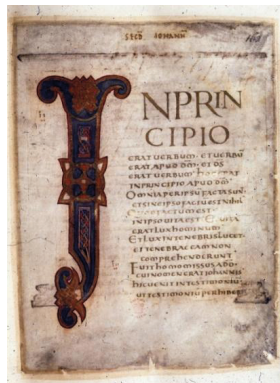 SECD IOHANN
INPRIN
CIPIO
ERAT UERBUM · ET UERBU
ERAT APUD DM · ET DS
ERAT UERBUM
IN PRINCIPIO APUD DM
OMNIA PER IPSU FACTA SUN
ET SINE IPSO FACTU EST NIHIL
FACTUM EST
IN IPSO UITA EST
ERAT LUX HOMINUM
ET LUX IN TENEBRIS LUCET
ET TENEBRAE EAM NON
COMPREHENDERUNT
FUIT HOMO MISSUS A DO
CUI NOMEN ERAT IOHANNIS
HIC UENIT IN TESTIMONIU
UT TESTIMONIU PERHIBERET